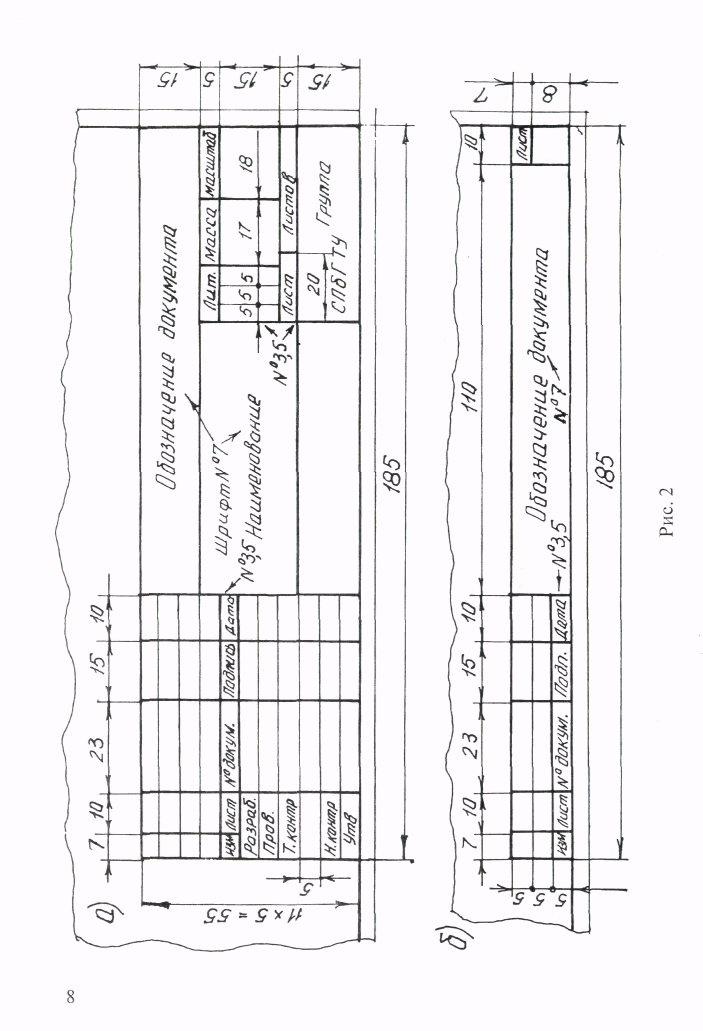 а)
7 10 23 15 10
11 × 5 = 55
Обозначение документа
Шрифт № 7
№ 3,5 Наименование
№ 3,5
Изм Лист № докум. Подпись Дата
Разраб.
Пров.
Т.контр
Н.контр
Утв
5
Лит. Масса Масштаб
5 5 5 17 18
Лист Листов
20
СПбГТУ Группа
15 5 15 5 15
185
б)
7 10 23 15 10 110 10
5 5 5
Изм Лист № докум. Подп. Дата
№ 3,5
Обозначение документа
№ 7
Лист
7 8
185
Рис. 2
8